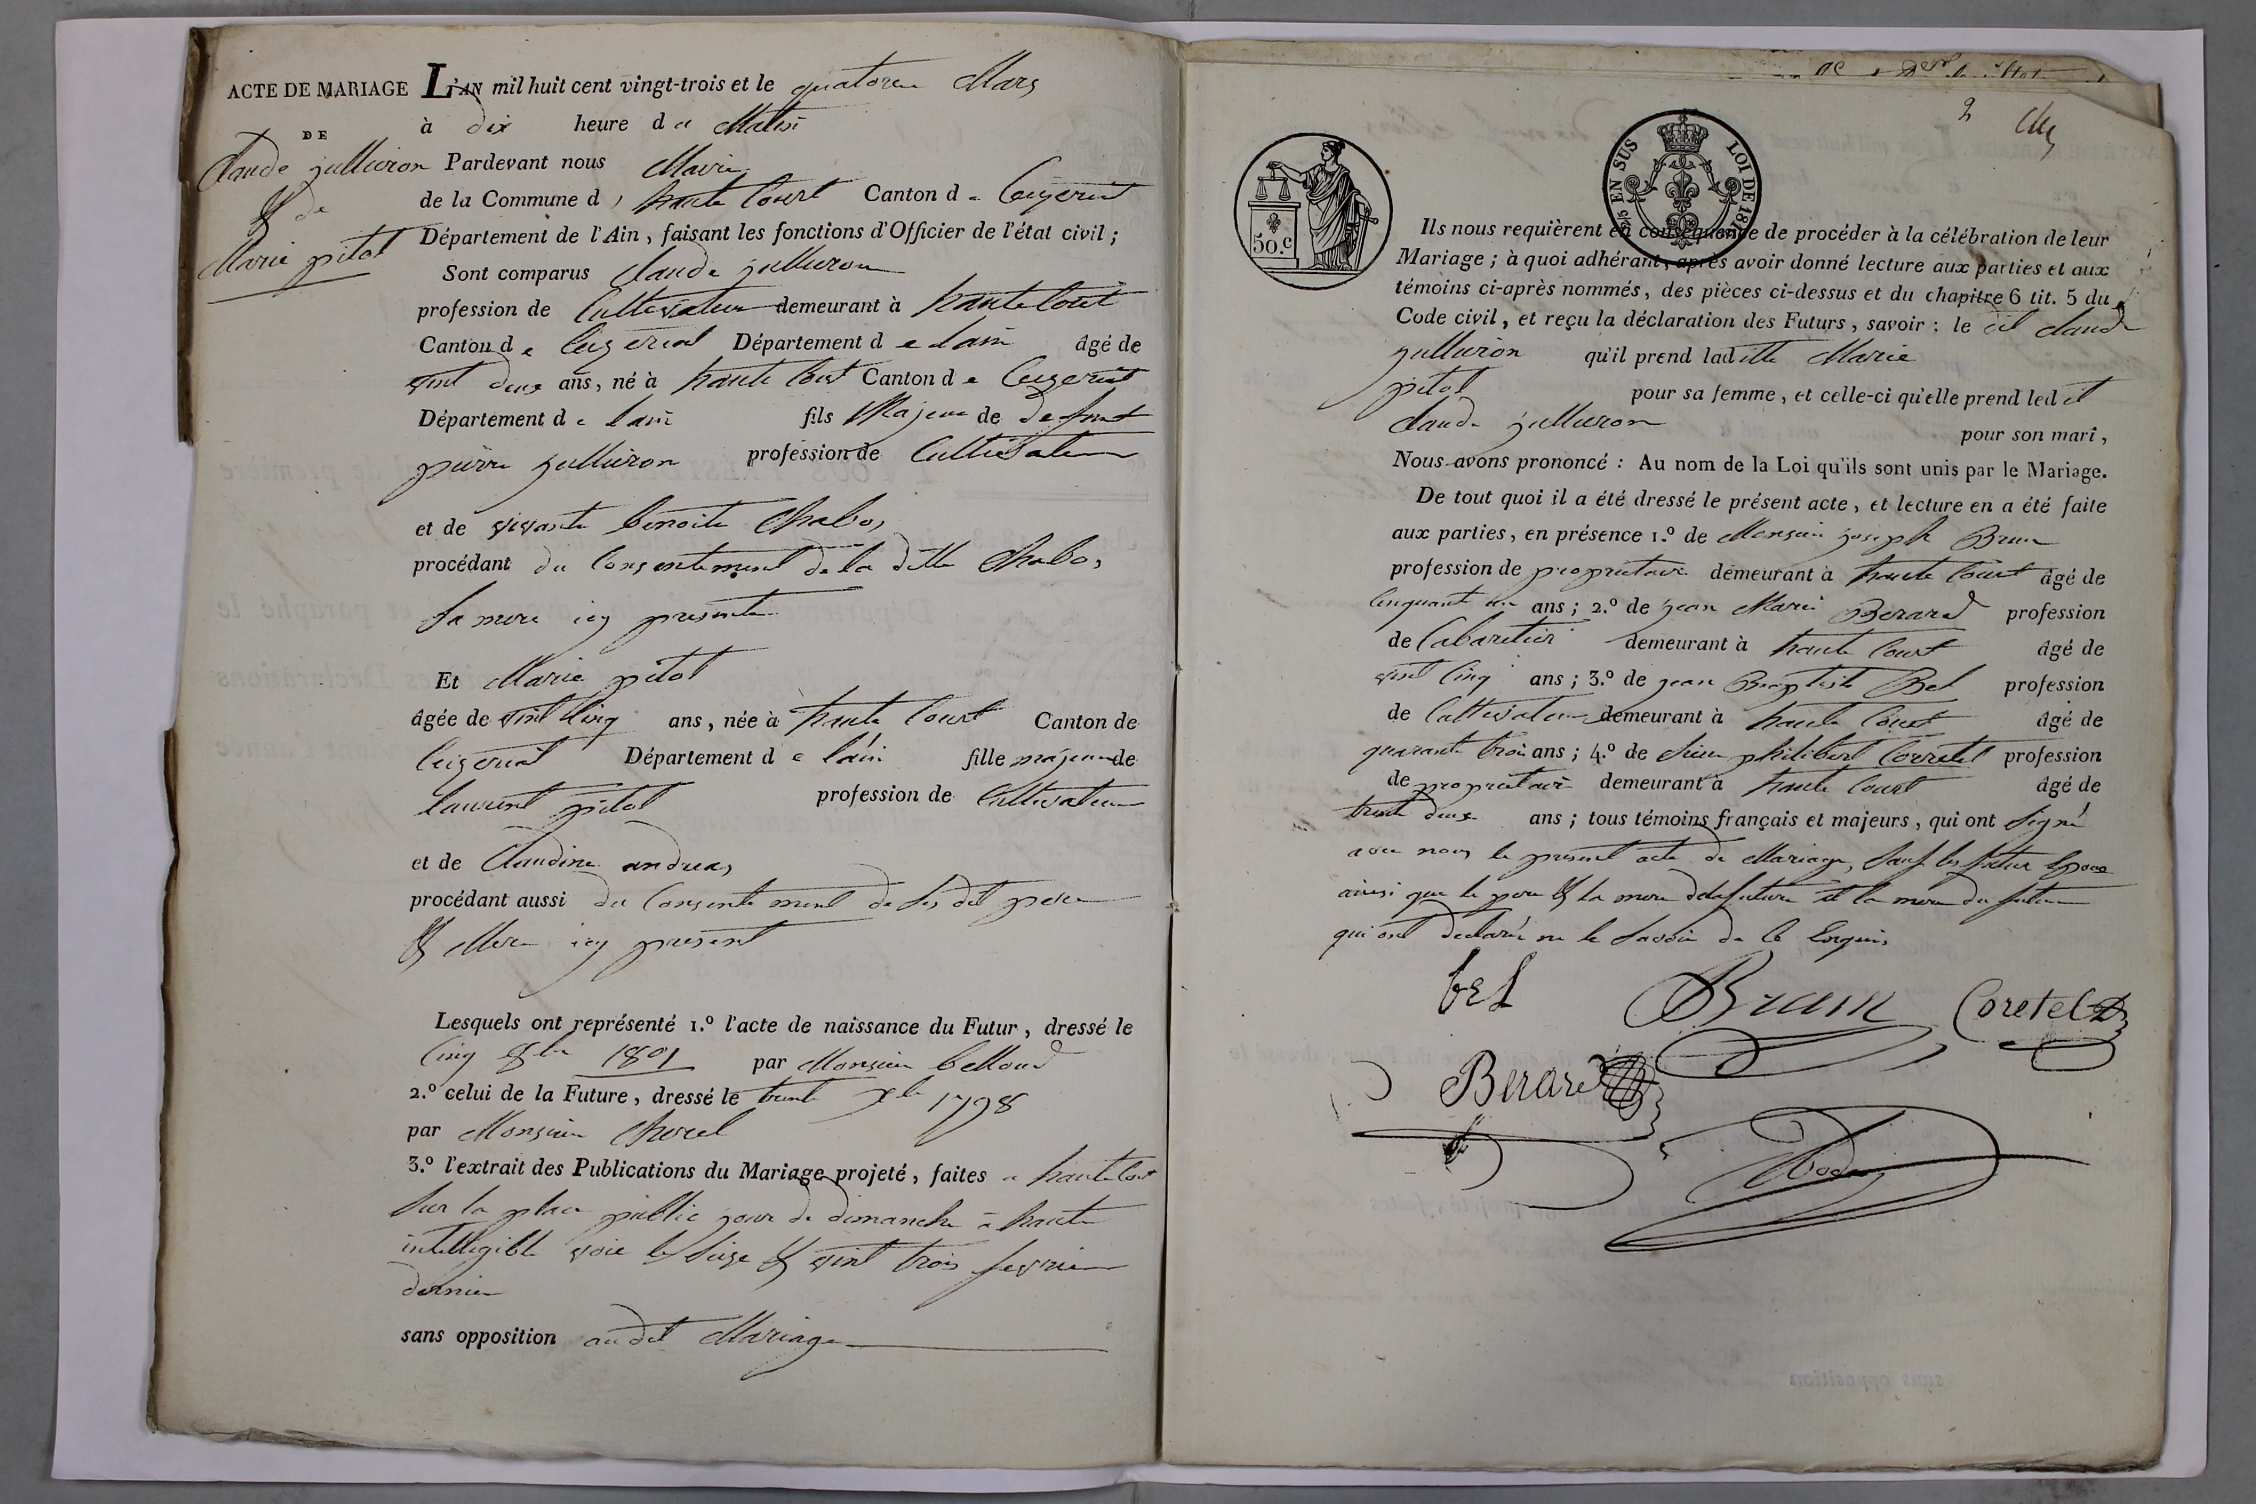 ACTE DE MARIAGE L'AN mil huit cent vingt-trois et le quatorze Mars
DE à dix heure du Matin
Claude julliéron Pardevant nous Maire
& de de la Commune d haute Court Canton de Ceizeriat
Marie pitol Département de l'Ain, faisant les fonctions d'Officier de l'état civil ;
Sont comparus Claude jullieron
profession de Cultivateur demeurant à haute Court
Canton de Ceizeriat Département de lain âgé de
vint deux ans, né à haute Court Canton de Ceizeriat
Département de lain fils Majeur de defunt
pierre jullieron profession de Cultivateur
et de vivante benoite Chabos
procédant du Consentement de la ditte Chabos
Sa mere icy presente
Et Marie pitol
âgée de vint Cinq ans, née à haute Court Canton de
Ceizeriat Département de lain fille majeure de
laurent pitol profession de Cultivateur
et de Claudine andreas
procédant aussi du Consentement de ses dit pere
& Mere icy present
Lesquels ont représenté 1.º l'acte de naissance du Futur, dressé le
Cinq 8bre 1801 par Monsieur belloud
2.º celui de la Future, dressé le trente Xbre 1798
par Monsieur
3.º l'extrait des Publications du Mariage projeté, faites a haute Court
Sur la place public jour de dimanche a haute
intelligible voie le Seize & vint trois fevrier
dernier
sans opposition audit Mariage
2
50.c
EN SUS LOI DE 181
Ils nous requièrent en conséquence de procéder à la célébration de leur
Mariage ; à quoi adhérant, après avoir donné lecture aux parties et aux
témoins ci-après nommés, des pièces ci-dessus et du chapitre 6 tit. 5 du
Code civil, et reçu la déclaration des Futurs, savoir : le dit Claude
jullieron qu'il prend laditte Marie
pitol pour sa femme, et celle-ci qu'elle prend ledit
Claude jullieron pour son mari,
Nous avons prononcé : Au nom de la Loi qu'ils sont unis par le Mariage.
De tout quoi il a été dressé le présent acte, et lecture en a été faite
aux parties, en présence 1.º de Monsieur joseph Brun
profession de proprietaire demeurant à haute Court âgé de
Cinquante un ans ; 2.º de jean Marie Berard profession
de Cabaretier demeurant à haute Court âgé de
vint Cinq ans ; 3.º de jean Baptiste Bel profession
de Cultivateur demeurant à haute Court âgé de
quarante trois ans ; 4.º de Sieur philibert Corretel profession
de proprietaire demeurant à haute Court âgé de
trente deux ans ; tous témoins français et majeurs, qui ont Signé
avec nous le present acte de Mariage, Sauf les futur Epoux
ainsi que le pere & la mere de la future et la mere du futur
qui ont declaré ne le Savoir de Ce Enquis
bel Brun Coretel
Berard